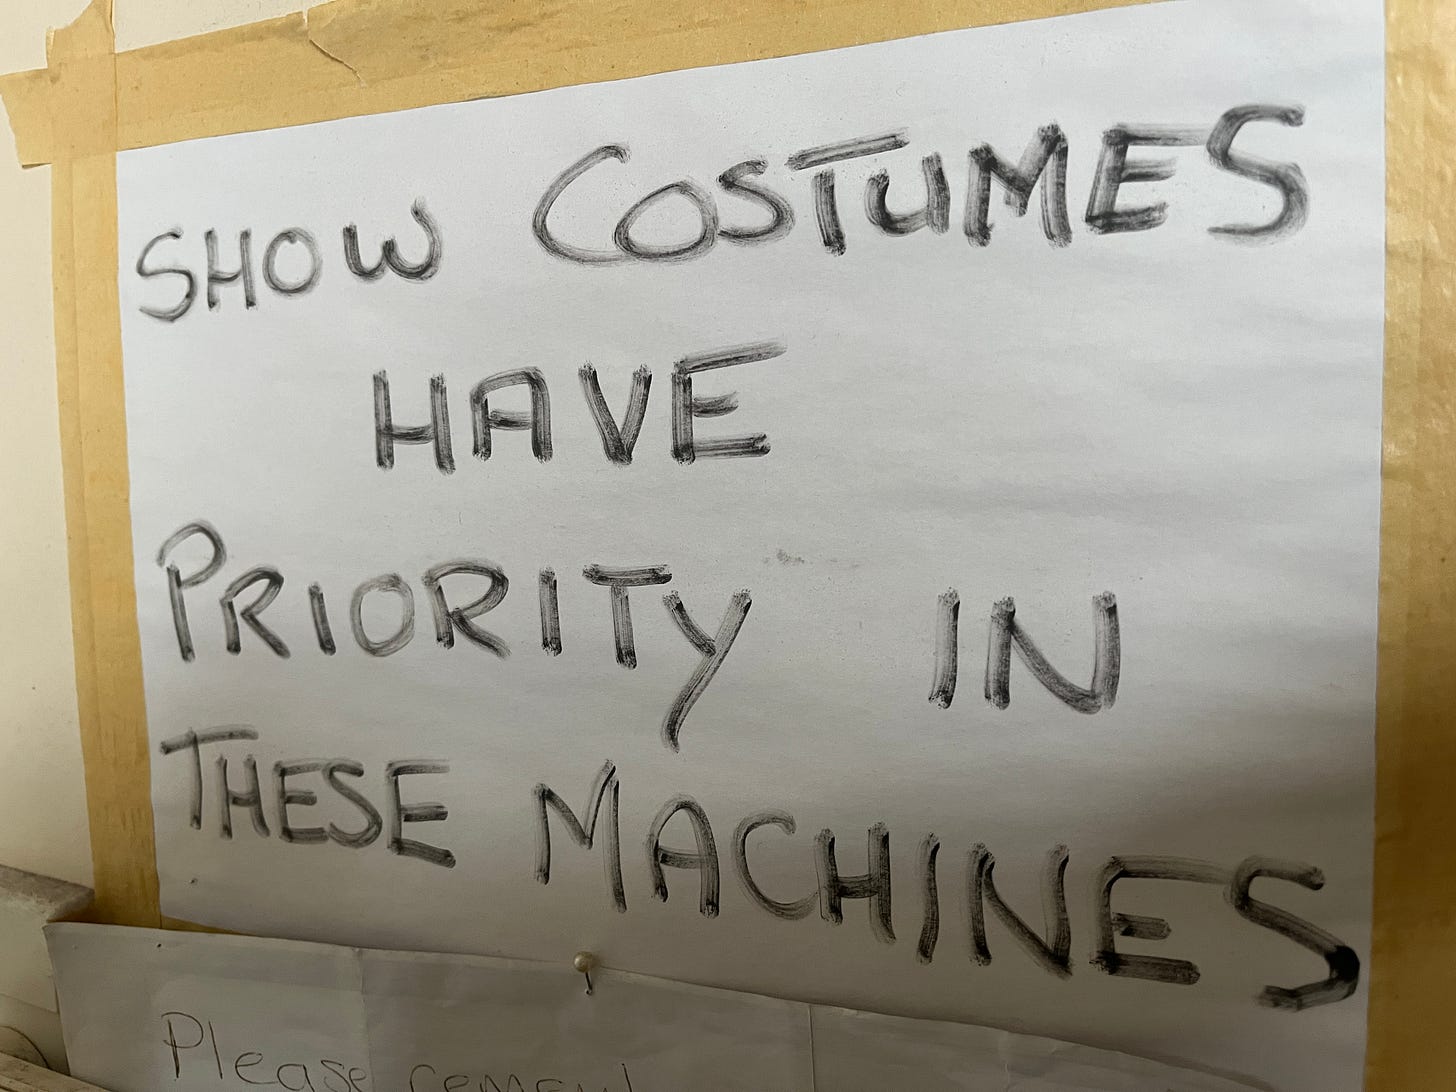 SHOW COSTUMES
HAVE
PRIORITY IN
THESE MACHINES
Please